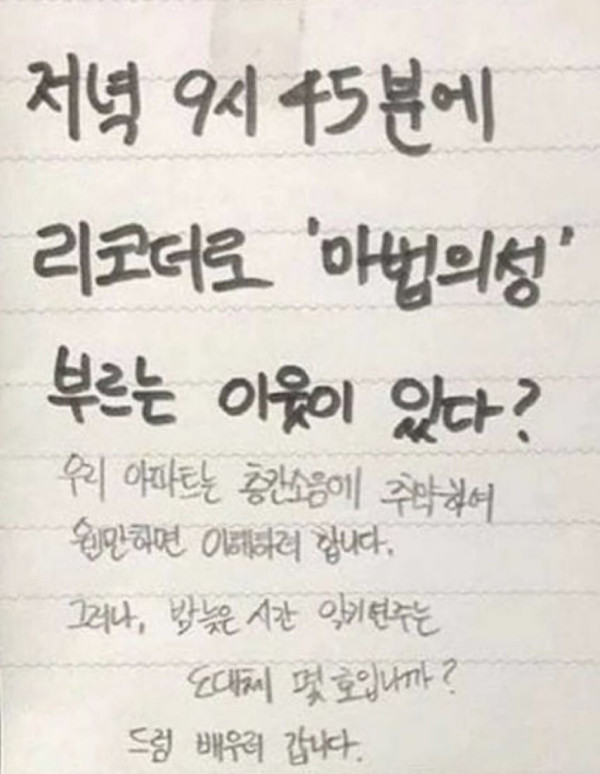 저녁 9시 45분에
리코더로 '마법의성'
부르는 이웃이 있다?
우리 아파트는 층간소음에 취약하여
웬만하면 이해하려 합니다.
그러나, 밤늦은 시간 악기연주는
도대체 몇 호입니까?
드럼 배우러 갑니다.